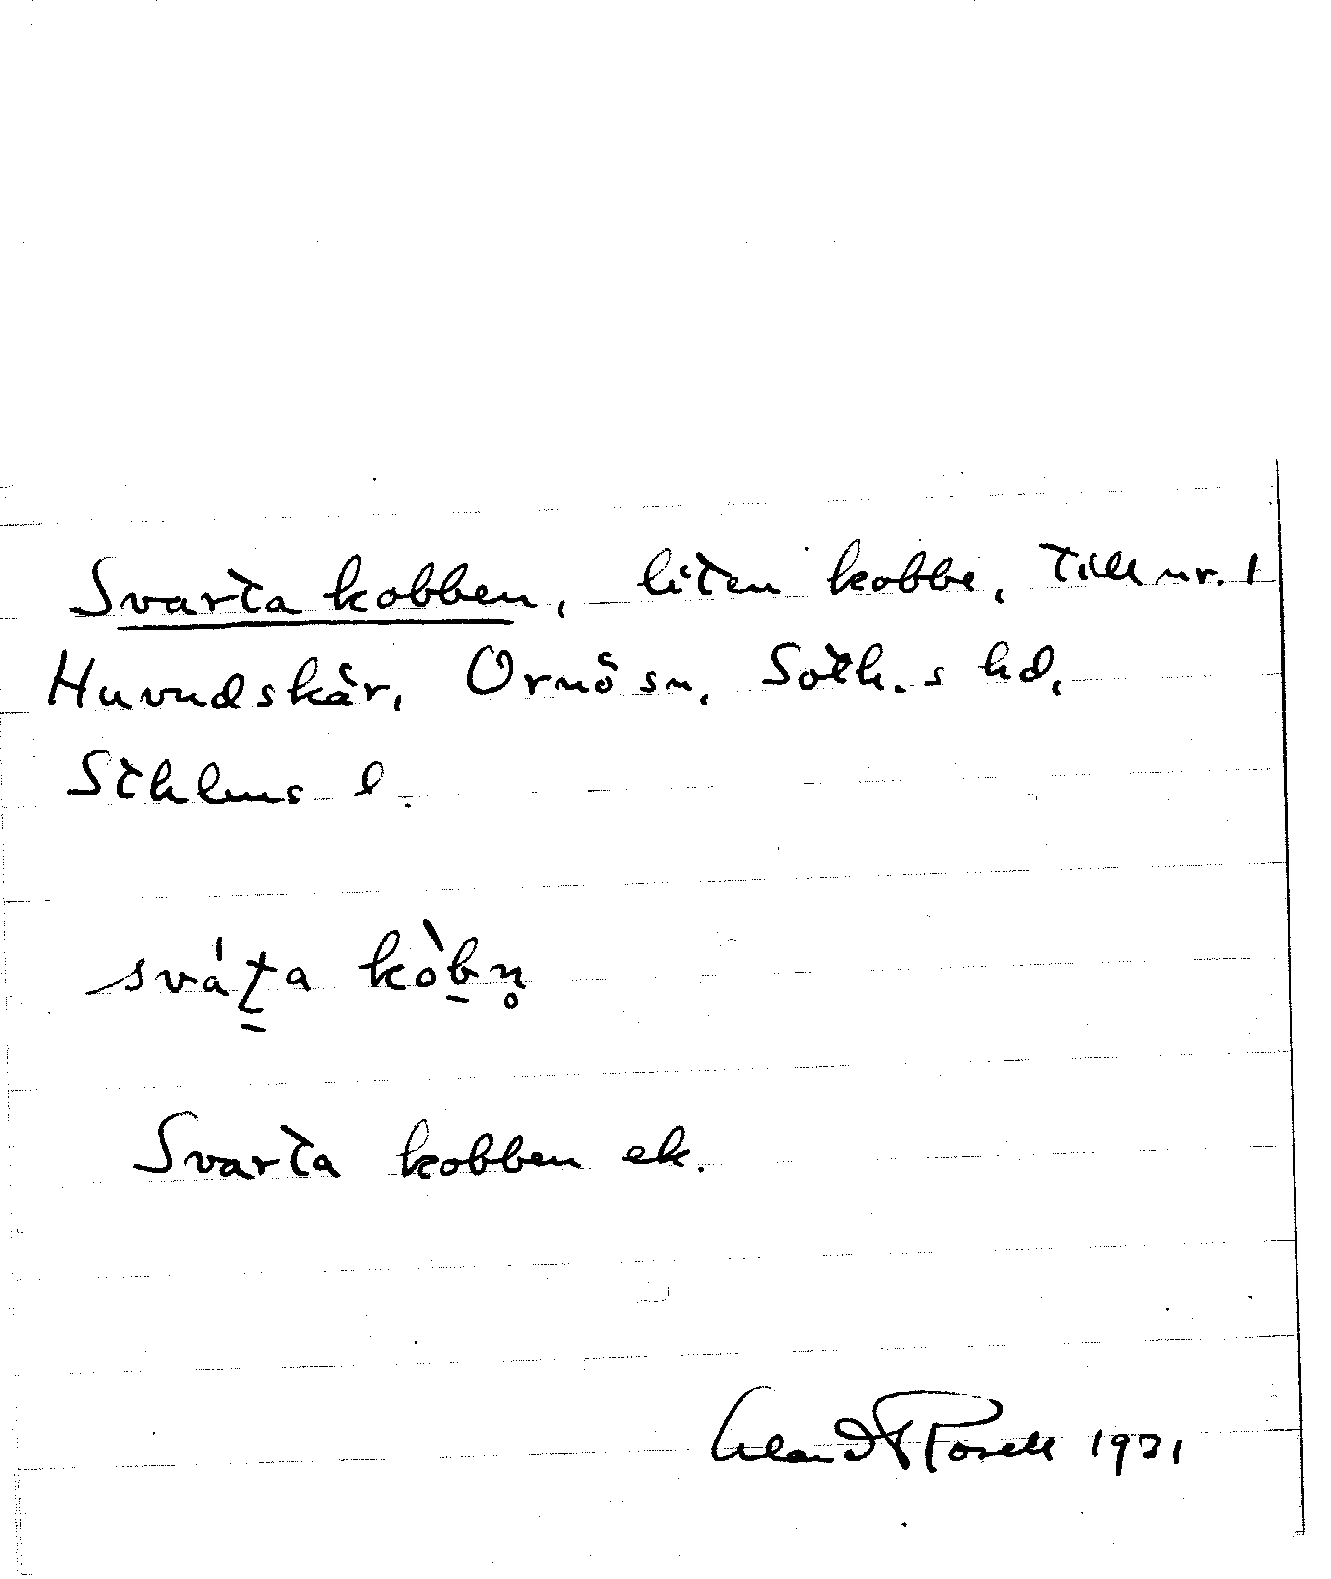 Svarta kobben, liten kobbe, till nr. 1
Huvudskär, Ornö sn, Soth.s hd,
Sthlms l.
svát̠a kòb̠n̥
Svarta kobben ek.
Rosell 1931